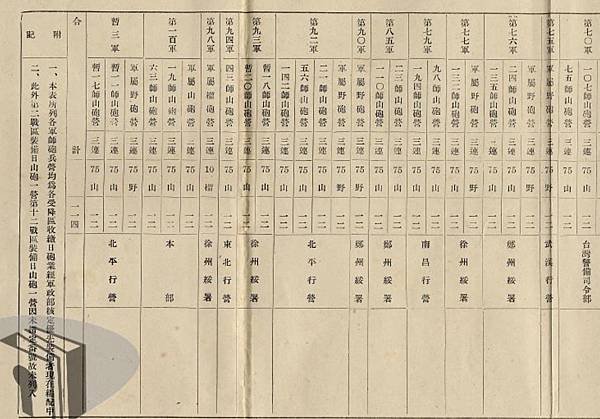 第七〇軍 一〇七師山砲營 三連 75 山 一二 台灣警備司令部
七五師山砲營 三連 75 山 一二
第七五軍 軍屬野砲營 三連 75 野 一二 武漢行營
第七六軍 軍屬野砲營 三連 75 野 一二 鄭州綏署
二四師山砲營 三連 75 山 一二
一三五師山砲營 三連 75 山 一二
軍屬野砲營 三連 75 野 一二 徐州綏署
一三二師山砲營 三連 75 山 一二
第七九軍 九八師山砲營 三連 75 山 一二 南昌行營
一九四師山砲營 三連 75 山 一二
第八五軍 二三師山砲營 三連 75 山 一二 鄭州綏署
一一〇師山砲營 三連 75 山 一二
第九〇軍 軍屬野砲營 三連 75 野 一二 鄭州綏署
第九二軍 軍屬野砲營 三連 75 野 一二 北平行營
二一師山砲營 三連 75 山 一二
五六師山砲營 三連 75 山 一二
一四二師山砲營 三連 75 山 一二
第九三軍 暫一八師山砲營 三連 75 山 一二 徐州綏署
暫二〇師山砲營 三連 75 山 一二
第九四軍 四三師山砲營 三連 75 山 一二 東北行營
第九八軍 軍屬榴砲營 三連 10 榴 一二 徐州綏署
第一百軍 軍屬山砲營 三連 75 山 一二 本部
一九師山砲營 三連 75 山 一二
六三師山砲營 三連 75 山 一二
暫三軍 軍屬野砲營 三連 75 野 一二 北平行營
暫一一師山砲營 三連 75 山 一二
暫一七師山砲營 三連 75 山 一二
合計 一四
附記
一、本表所列各軍師砲兵營均為各受降區收繳日砲業經軍政部核定優先裝備者現在補配中
二、此外第二戰區裝備日山砲一營第十二戰區裝備日山砲一營因未指定番號故未列入